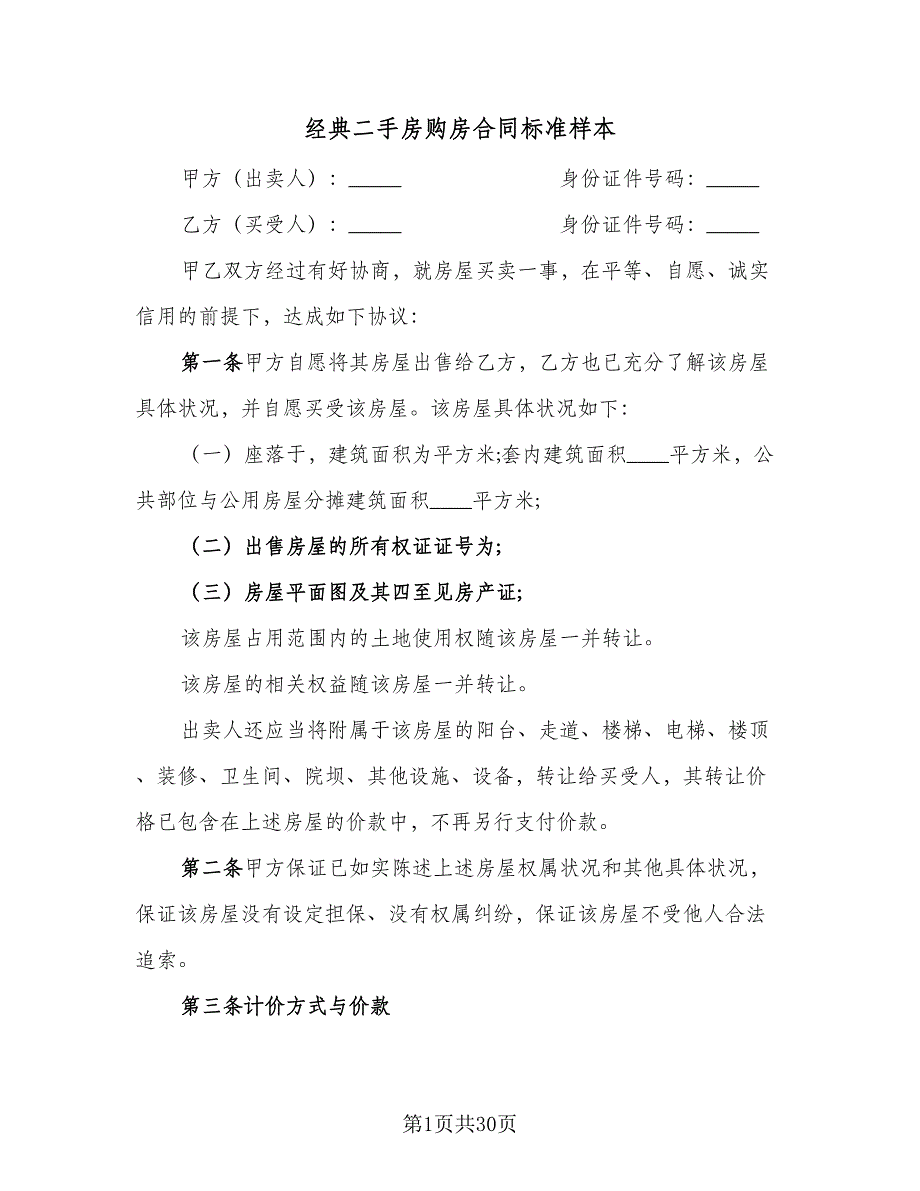 经典二手房购房合同标准样本
甲方（出卖人）：_____ 身份证件号码：_____
乙方（买受人）：_____ 身份证件号码：_____
甲乙双方经过有好协商，就房屋买卖一事，在平等、自愿、诚实
信用的前提下，达成如下协议：
第一条甲方自愿将其房屋出售给乙方，乙方也已充分了解该房屋
具体状况，并自愿买受该房屋。该房屋具体状况如下：
（一）座落于，建筑面积为平方米;套内建筑面积____平方米，公
共部位与公用房屋分摊建筑面积____平方米;
（二）出售房屋的所有权证证号为;
（三）房屋平面图及其四至见房产证;
该房屋占用范围内的土地使用权随该房屋一并转让。
该房屋的相关权益随该房屋一并转让。
出卖人还应当将附属于该房屋的阳台、走道、楼梯、电梯、楼顶
、装修、卫生间、院坝、其他设施、设备，转让给买受人，其转让价
格已包含在上述房屋的价款中，不再另行支付价款。
第二条甲方保证已如实陈述上述房屋权属状况和其他具体状况，
保证该房屋没有设定担保、没有权属纠纷，保证该房屋不受他人合法
追索。
第三条计价方式与价款
第1页共30页